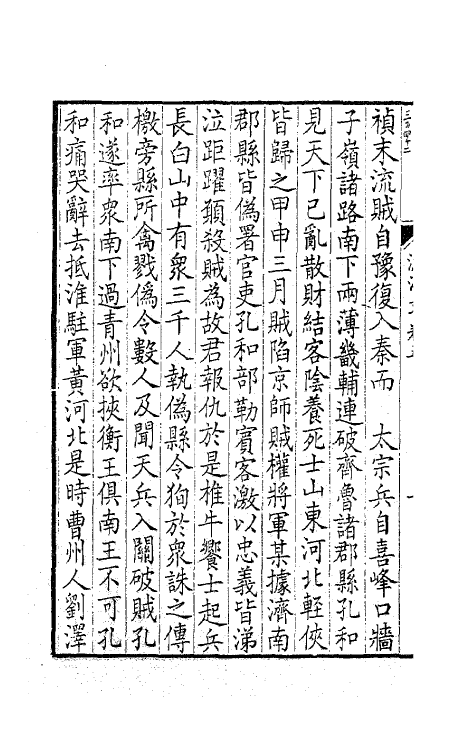 禎末流賊自豫復入秦而　太宗兵自喜峰口牆
子嶺諸路南下兩薄畿輔連破齊魯諸郡縣孔和
見天下已亂散財結客陰養死士山東河北輕俠
皆歸之甲申三月賊陷京師賊權將軍某據濟南
郡縣皆偽署官吏孔和部勒賓客激以忠義皆涕
泣距躍願殺賊為故君報仇於是椎牛饗士起兵
長白山中有衆三千人執偽縣令狥於衆誅之傳
檄旁縣所禽戮偽令數人及聞天兵入關破賊孔
和遂率衆南下過青州欲挾衡王俱南王不可孔
和痛哭辭去抵淮駐軍黃河北是時曹州人劉澤